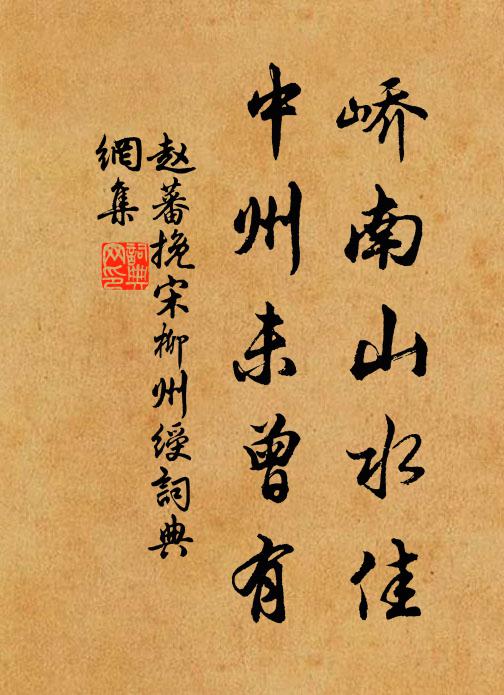 峤南山水佳
中州未曾有
赵蕃挽宋柳州绶詞典
網集
詞典
网印